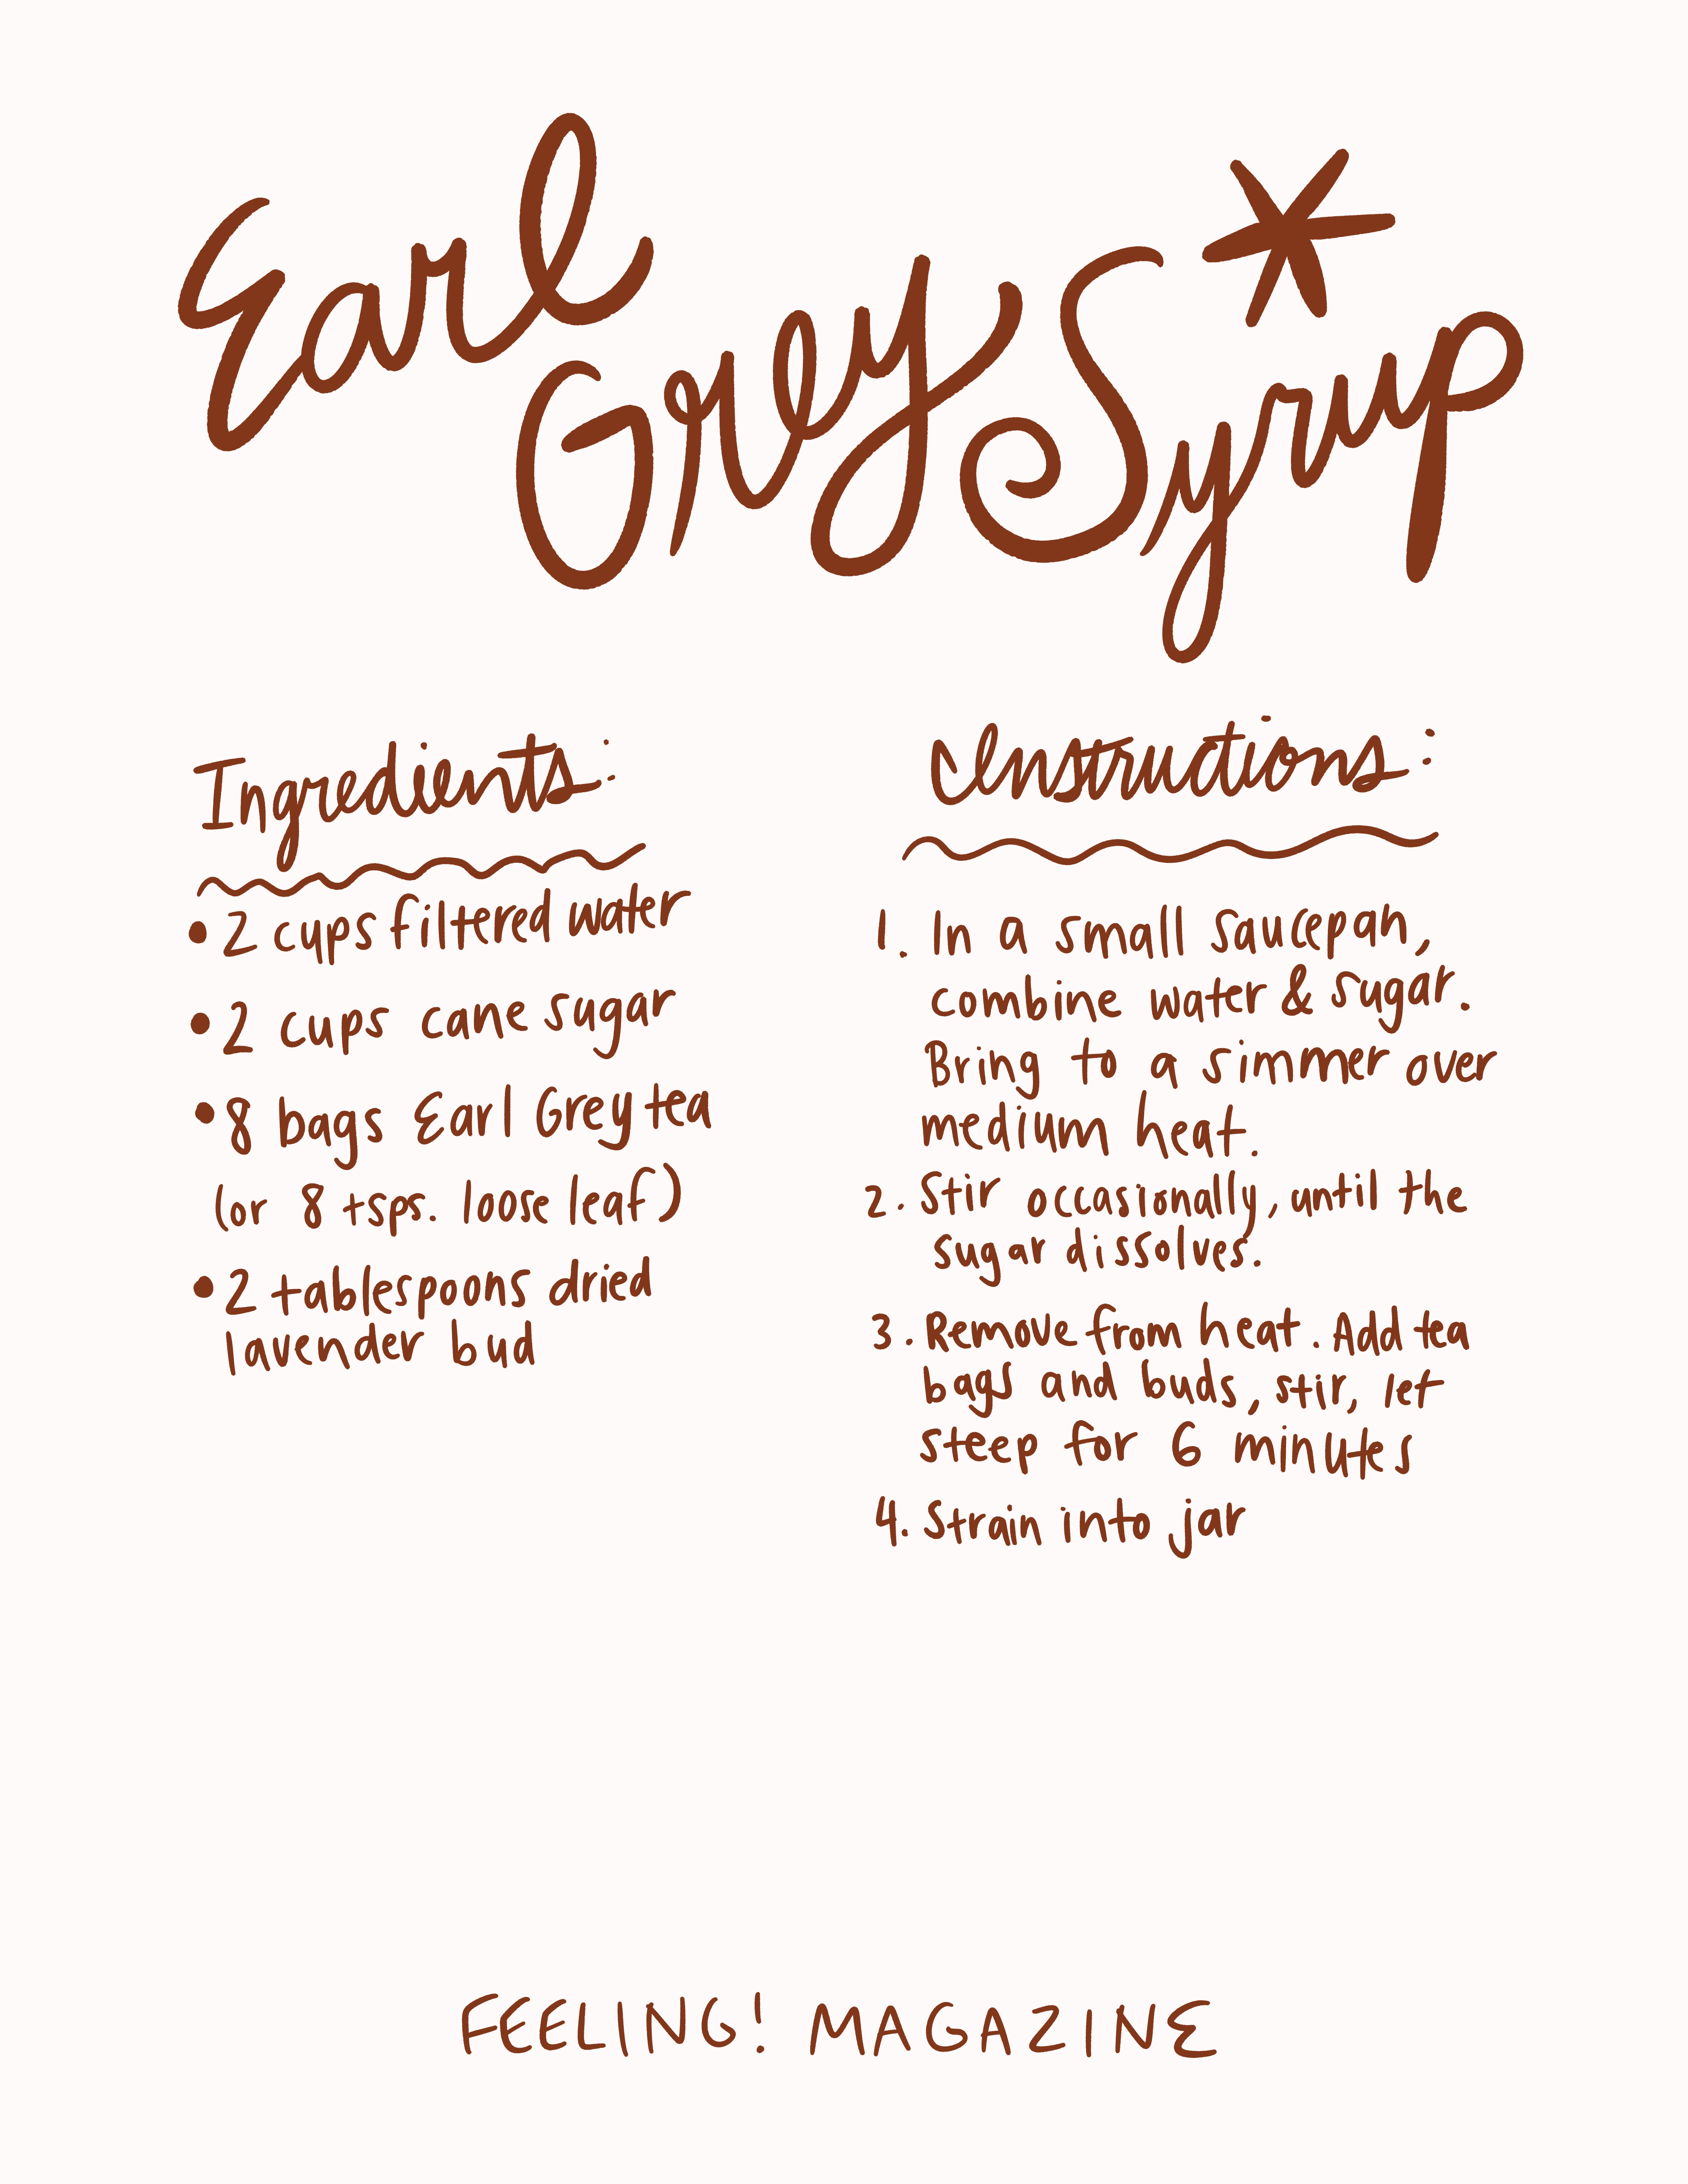 Earl
Grey Syrup*
Ingredients:
• 2 cups filtered water
• 2 cups cane sugar
• 8 bags Earl Grey tea
(or 8 tsps. loose leaf)
• 2 tablespoons dried
lavender bud
Instructions:
1. In a small saucepan,
combine water & sugar.
Bring to a simmer over
medium heat.
2. Stir occasionally, until the
sugar dissolves.
3. Remove from heat. Add tea
bags and buds, stir, let
steep for 6 minutes
4. Strain into jar
FEELING! MAGAZINE